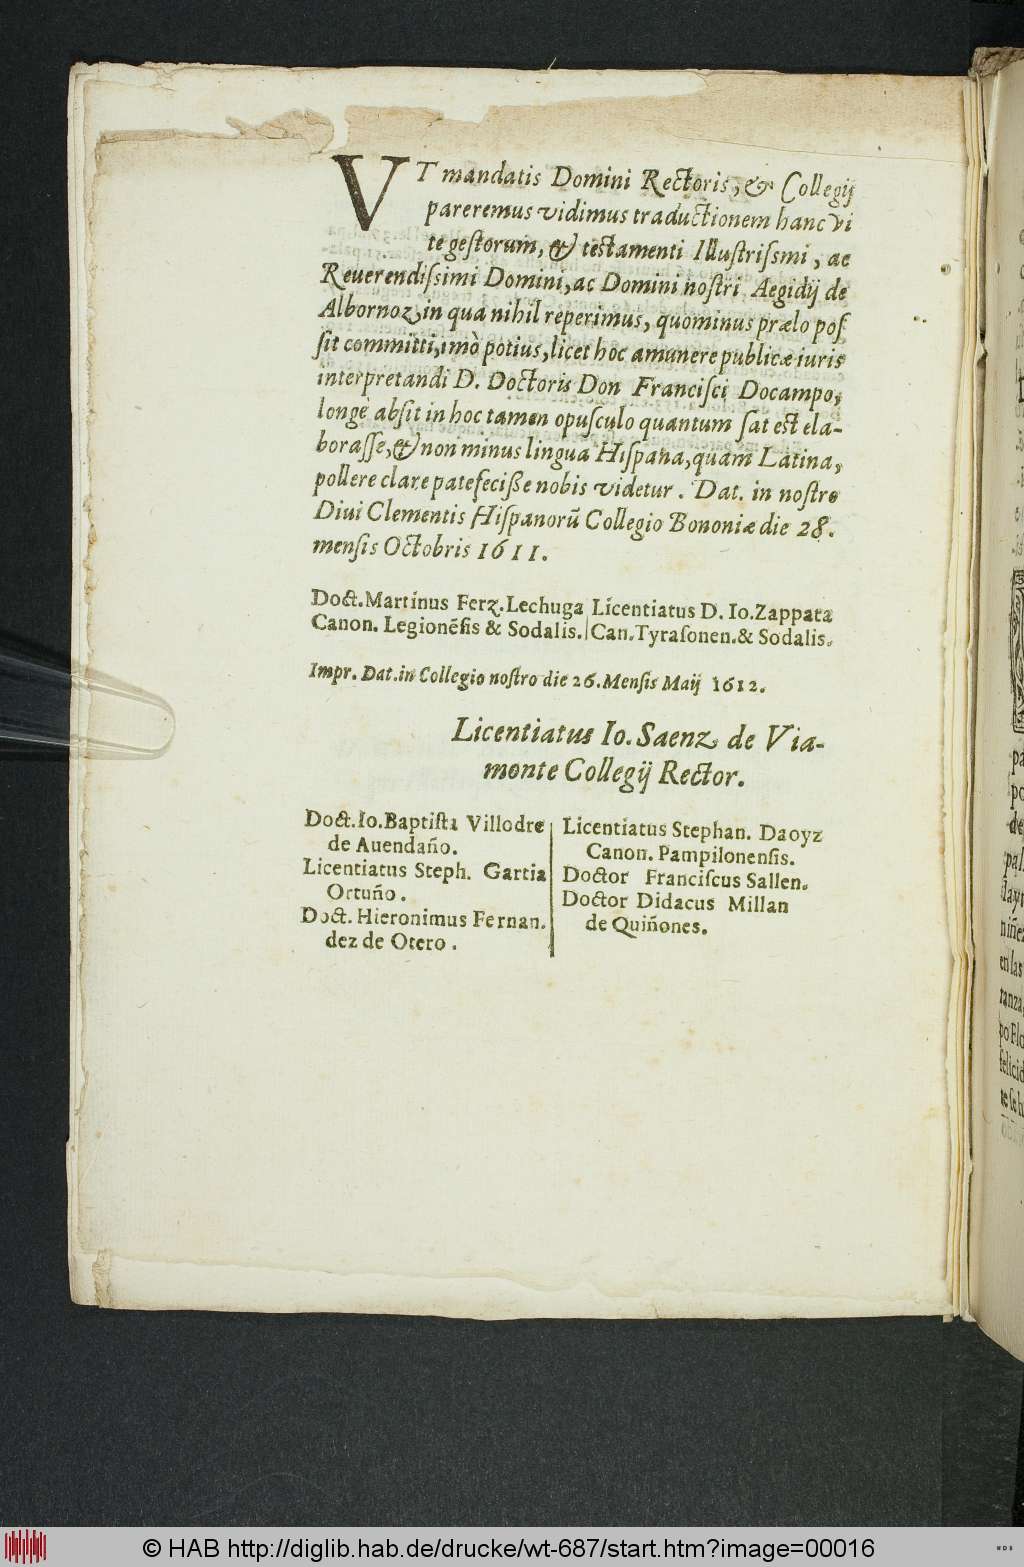 VT mandatis Domini Rectoris, & Collegij
pareremus vidimus traductionem hanc vi
te gestorum, & testamenti Illustrissmi, ac
Reuerendissimi Domini, ac Domini nostri Aegidij de
Albornoz, in qua nihil reperimus, quominus prælo pos
sit committi, imò potius, licet hoc a munere publicæ iuris
interpretandi D. Doctoris Don Francisci Docampo,
longè absit in hoc tamen opusculo quantum sat est ela-
borasse, & non minus lingua Hispana, quam Latina,
pollere clare patefecisse nobis videtur. Dat. in nostro
Diui Clementis Hispanorũ Collegio Bononiæ die 28.
mensis Octobris 1611.
Doct. Martinus Ferz. Lechuga
Canon. Legionẽsis & Sodalis.
Licentiatus D. Io. Zappata
Can. Tyrasonen. & Sodalis.
Impr. Dat. in Collegio nostro die 26. Mensis Maij 1612.
Licentiatus Io. Saenz de Via-
monte Collegij Rector.
Doct. Io. Baptista Villodre
de Auendaño.
Licentiatus Steph. Gartia
Ortuño.
Doct. Hieronimus Fernan.
dez de Otero.
Licentiatus Stephan. Daoyz
Canon. Pampilonensis.
Doctor Franciscus Sallen.
Doctor Didacus Millan
de Quiñones.
© HAB http://diglib.hab.de/drucke/wt-687/start.htm?image=00016